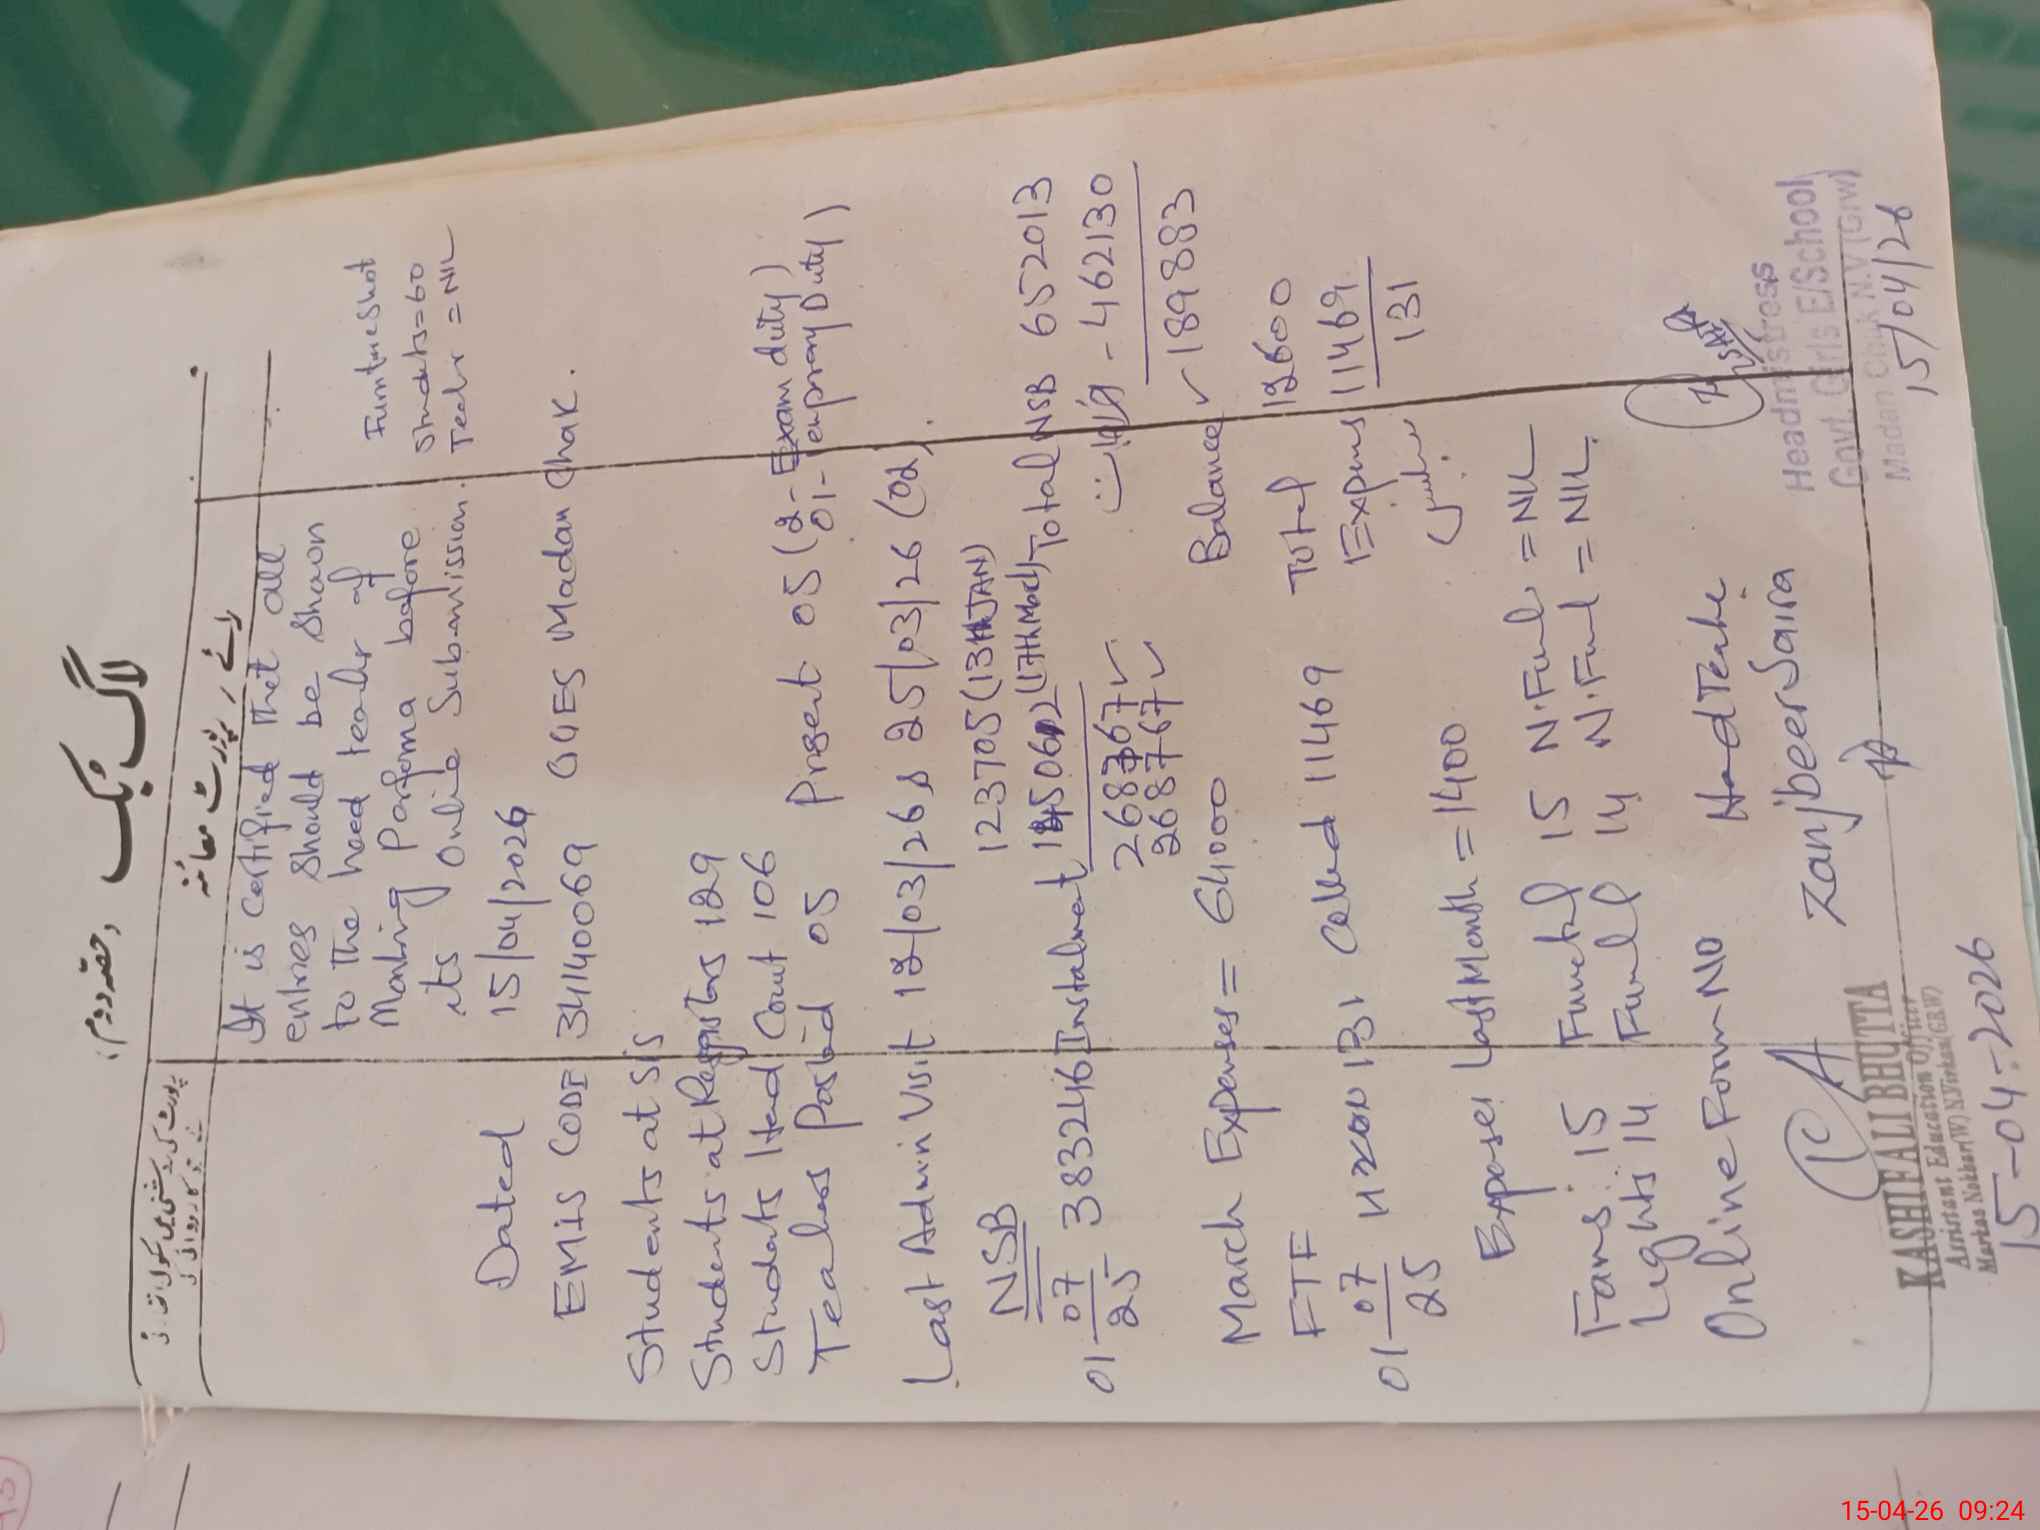 لاگ بک (حصہ دوم)
رائے / رپورٹ معائنہ
It is certified that all
entries should be shown
to the head teachr of
Monitoring Performa before
its Online Submission.
Furnture Shot
Students=60
Teachr = NIL
Dated 15/04/2026
EMIS CODE 34140069 GGES Madan Chak.
Students at SIS
Students at Registers 129
Students Head Count 106
Teachers Posted 05 Present 05 (2- Exam duty)
01- Temprory Duty)
Last Admin Visit 12/03/26 & 25/03/26 (02).
NSB
123705 (13th JAN)
01-07/25 383246 Instalment 145062 (17th March) Total NSB 652013
- 462130
268767 ✓
268767 ✓
Balance ✓ 189883
March Expenses = 64000
FTF Total 12600
01-07/25 11200 131 Colled 11469 Expens 11469
131
Expenses Last Month = 1400
Fans: 15 Functnl 15 N.Funl = NIL
Lights 14 Funl 14 N.Funl = NIL.
Online Form NO Head Teache
Zanjbeer Saira
KASHIF ALI BHUTTA
Assistant Education Officer
Markaz Nokhar(W) N.Virkan(GRW)
15-04-2026
Headmistress
Govt. Girls E/School
Madan Chak N.V (GRW)
15/04/26
15-04-26 09:24